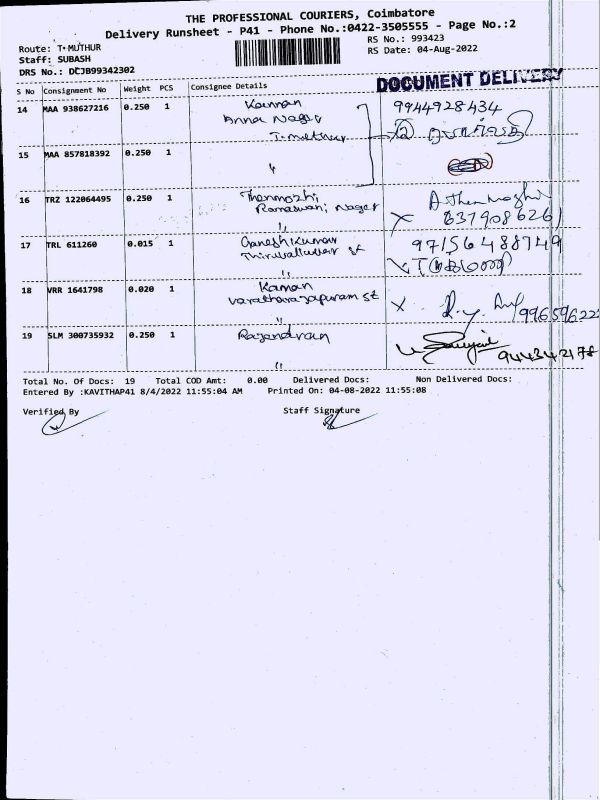 THE PROFESSIONAL COURIERS, Coimbatore
Delivery Runsheet - P41 - Phone No.:0422-3505555 - Page No.:2
Route: T-MUTHUR
RS No.: 993423
Staff: SUBASH
RS Date: 04-Aug-2022
DRS No.: DCJB99342302
S No Consignment No Weight PCS Consignee Details
DOCUMENT DELIVERY
14 MAA 938627216 0.250 1 Kannan 9944928434
Anna Nagar
T. muthur
15 MAA 857818392 0.250 1 "
16 TRZ 122064495 0.250 1 Thenmozhi A. Thenmozhi
Ramaswami Nagar 637908626
"
17 TRL 611260 0.015 1 Ganesh Kumar 97156488749
Thiruvalluver st
"
18 VRR 1641798 0.020 1 Kannan
Varatharajapuram st 99659622
"
19 SLM 300735932 0.250 1 Rajendran
944342178
"
Total No. Of Docs: 19 Total COD Amt: 0.00 Delivered Docs: Non Delivered Docs:
Entered By :KAVITHAP41 8/4/2022 11:55:04 AM Printed On: 04-08-2022 11:55:08
Verified By Staff Signature